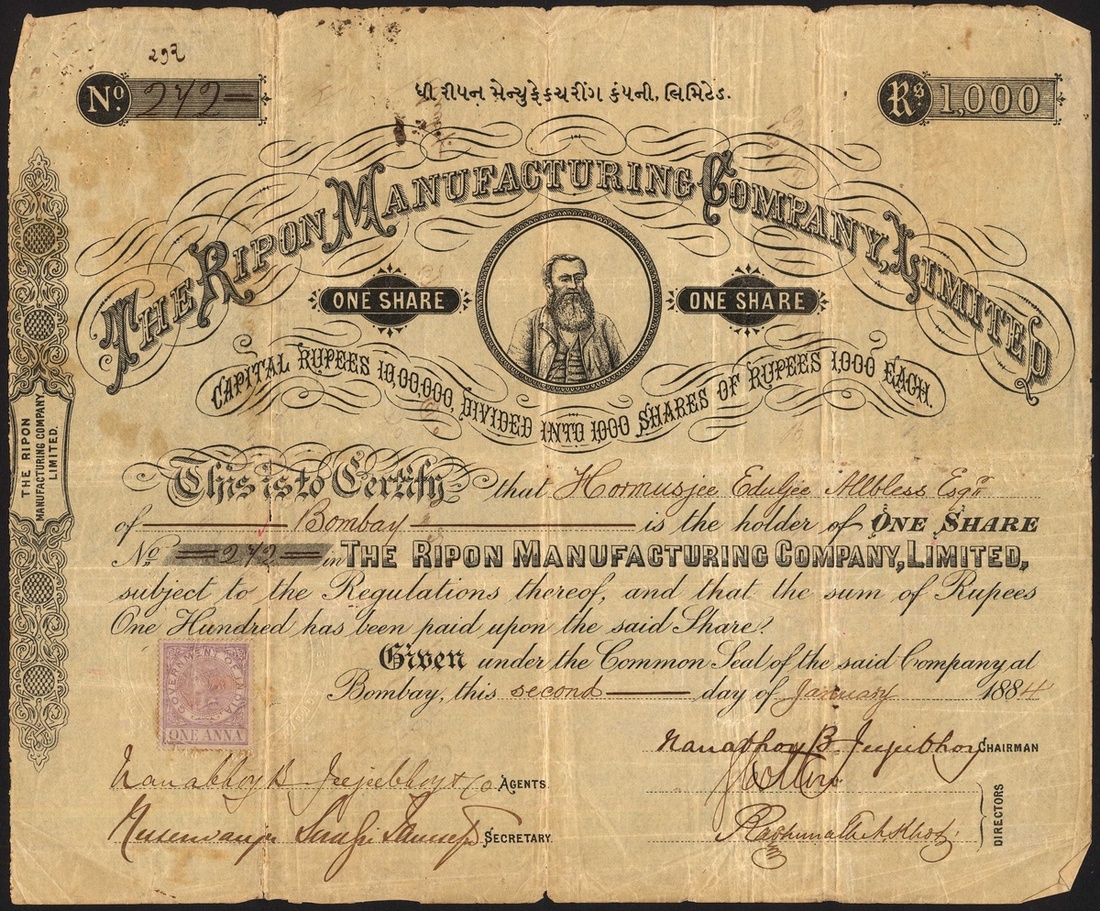 ૨૭૨
No. 272
ધી રીપન મેન્યુફેકચરીંગ કંપની, લિમિટેડ.
Rs 1,000
THE RIPON MANUFACTURING COMPANY, LIMITED
ONE SHARE
ONE SHARE
CAPITAL RUPEES 10,00,000, DIVIDED INTO 1000 SHARES OF RUPEES 1,000 EACH.
THE RIPON
MANUFACTURING COMPANY,
LIMITED.
This is to Certify that Hormusjee Eduljee Allbless Esqr
of Bombay is the holder of ONE SHARE
No. 272 in THE RIPON MANUFACTURING COMPANY, LIMITED,
subject to the Regulations thereof, and that the sum of Rupees
One Hundred has been paid upon the said Share.
Given under the Common Seal of the said Company at
Bombay, this second day of January 1884
GOVERNMENT OF INDIA
ONE ANNA
Nanabhoy B. Jejeebhoy CHAIRMAN
Nanabhoy B. Jejeebhoy & Co AGENTS.
SECRETARY.
DIRECTORS